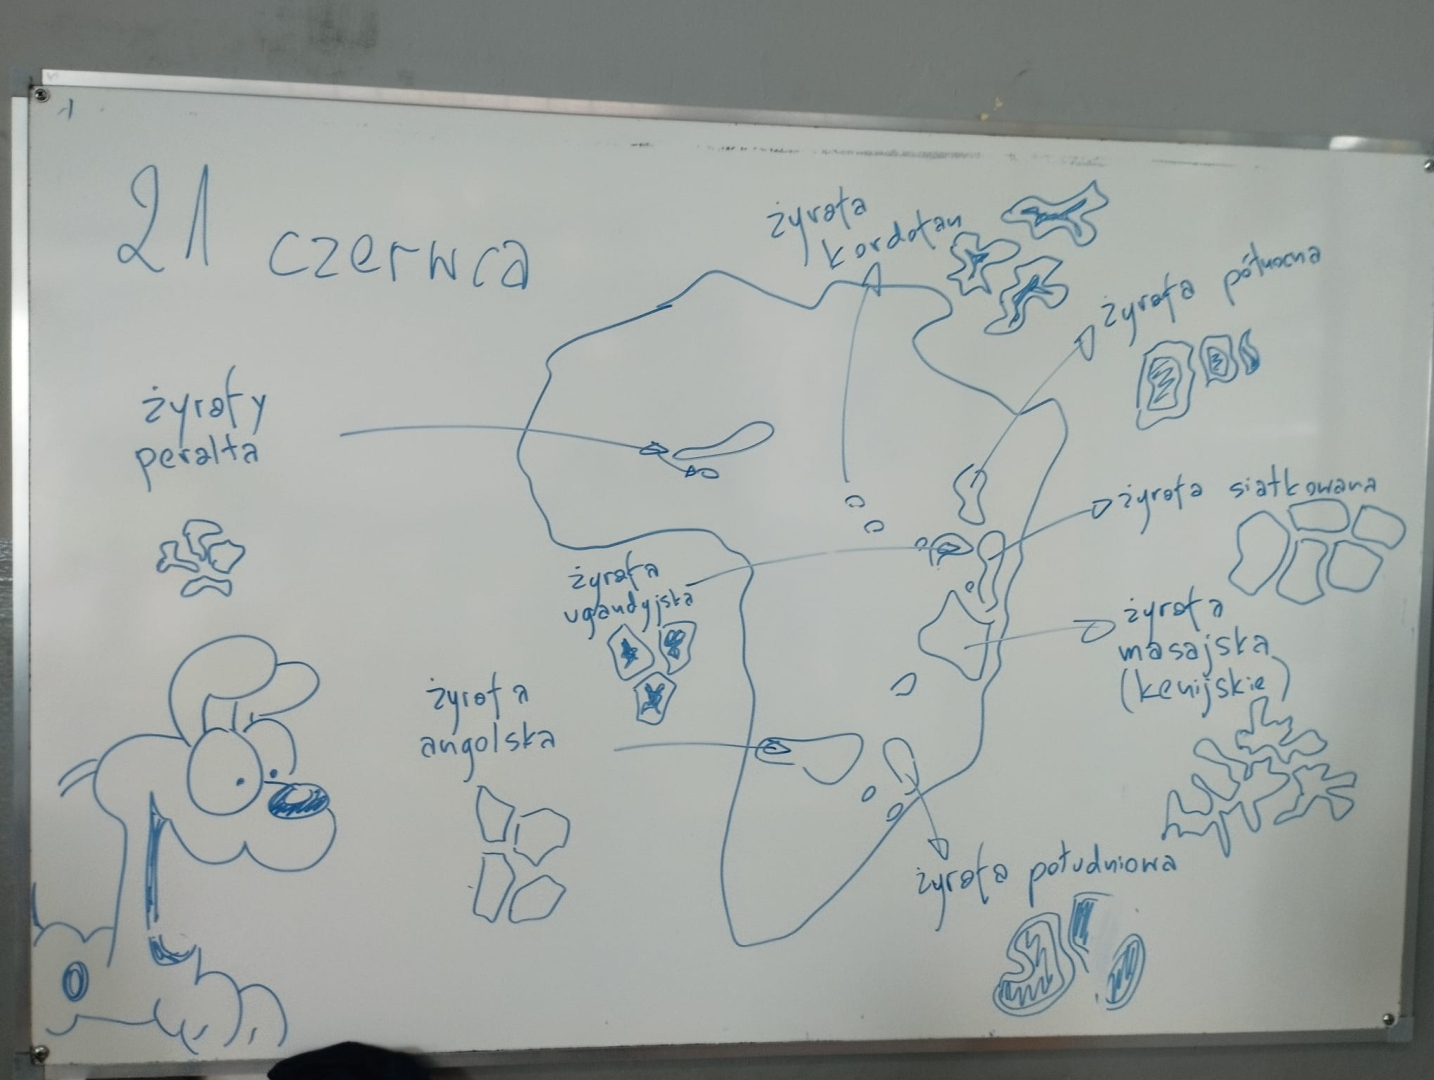 21 czerwca
żyrafa
kordofan
żyrafa północna
żyrafy
peralta
żyrafa siatkowana
żyrafa
ugandyjska
żyrafa
masajska
(kenijskie)
żyrafa
angolska
żyrafa południowa